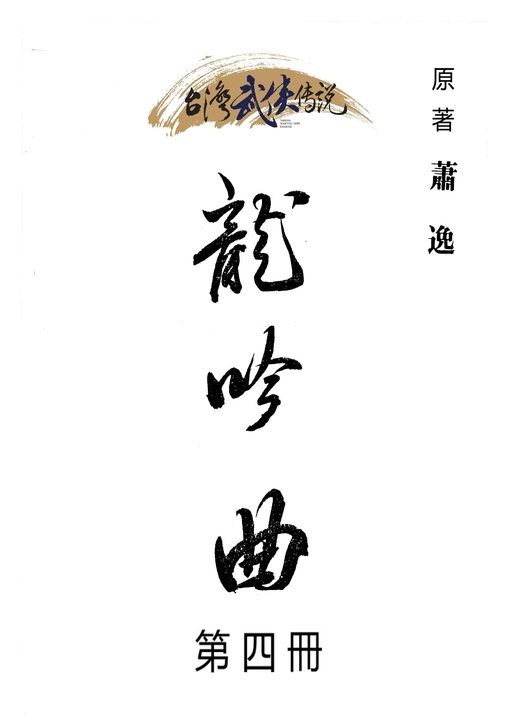 台灣武俠传説
原著 蕭逸
龍吟曲
第四冊